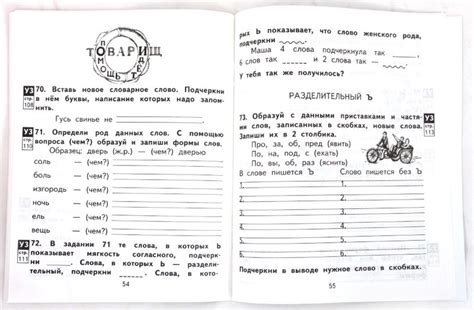 ТОВАРИЩ
УЗ
стр.
108
70. Вставь новое словарное слово. Подчеркни
в нём буквы, написание которых надо запом-
нить.
Гусь свинье не
УЗ
стр.
110
71. Определи род данных слов. С помощью
вопроса (чем?) образуй и запиши формы слов.
Образец: дверь (ж.р.) — (чем?) дверью
соль – (чем?)
боль – (чем?)
изгородь – (чем?)
ночь – (чем?)
ель – (чем?)
вещь – (чем?)
УЗ
стр.
111
72. В задании 71 те слова, в которых Ь
показывает мягкость согласного, подчерк-
ни _____. Слова, в которых Ь — раздели-
тельный, подчеркни _ _ _ _. Слова, в кото-
54
рых Ь показывает, что слово женского рода,
подчеркни
Маша 4 слова подчеркнула так ____,
6 слов так _ _ _ _ и 2 слова так
У тебя так же получилось?
РАЗДЕЛИТЕЛЬНЫЙ Ъ
73. Образуй с данными приставками и частя-
ми слов, записанных в скобках, новые слова.
Запиши их в 2 столбика.
УЗ
стр.
113
Про, за, об, пред (явить)
По, на, под, с (ехать)
По, вы, об, раз (яснить)
В слове пишется Ъ Слово пишется без Ъ
1. 1.
2. 2.
3. 3.
4. 4.
5. 5.
6. 6.
Подчеркни в выводе нужное слово в скобках.
55